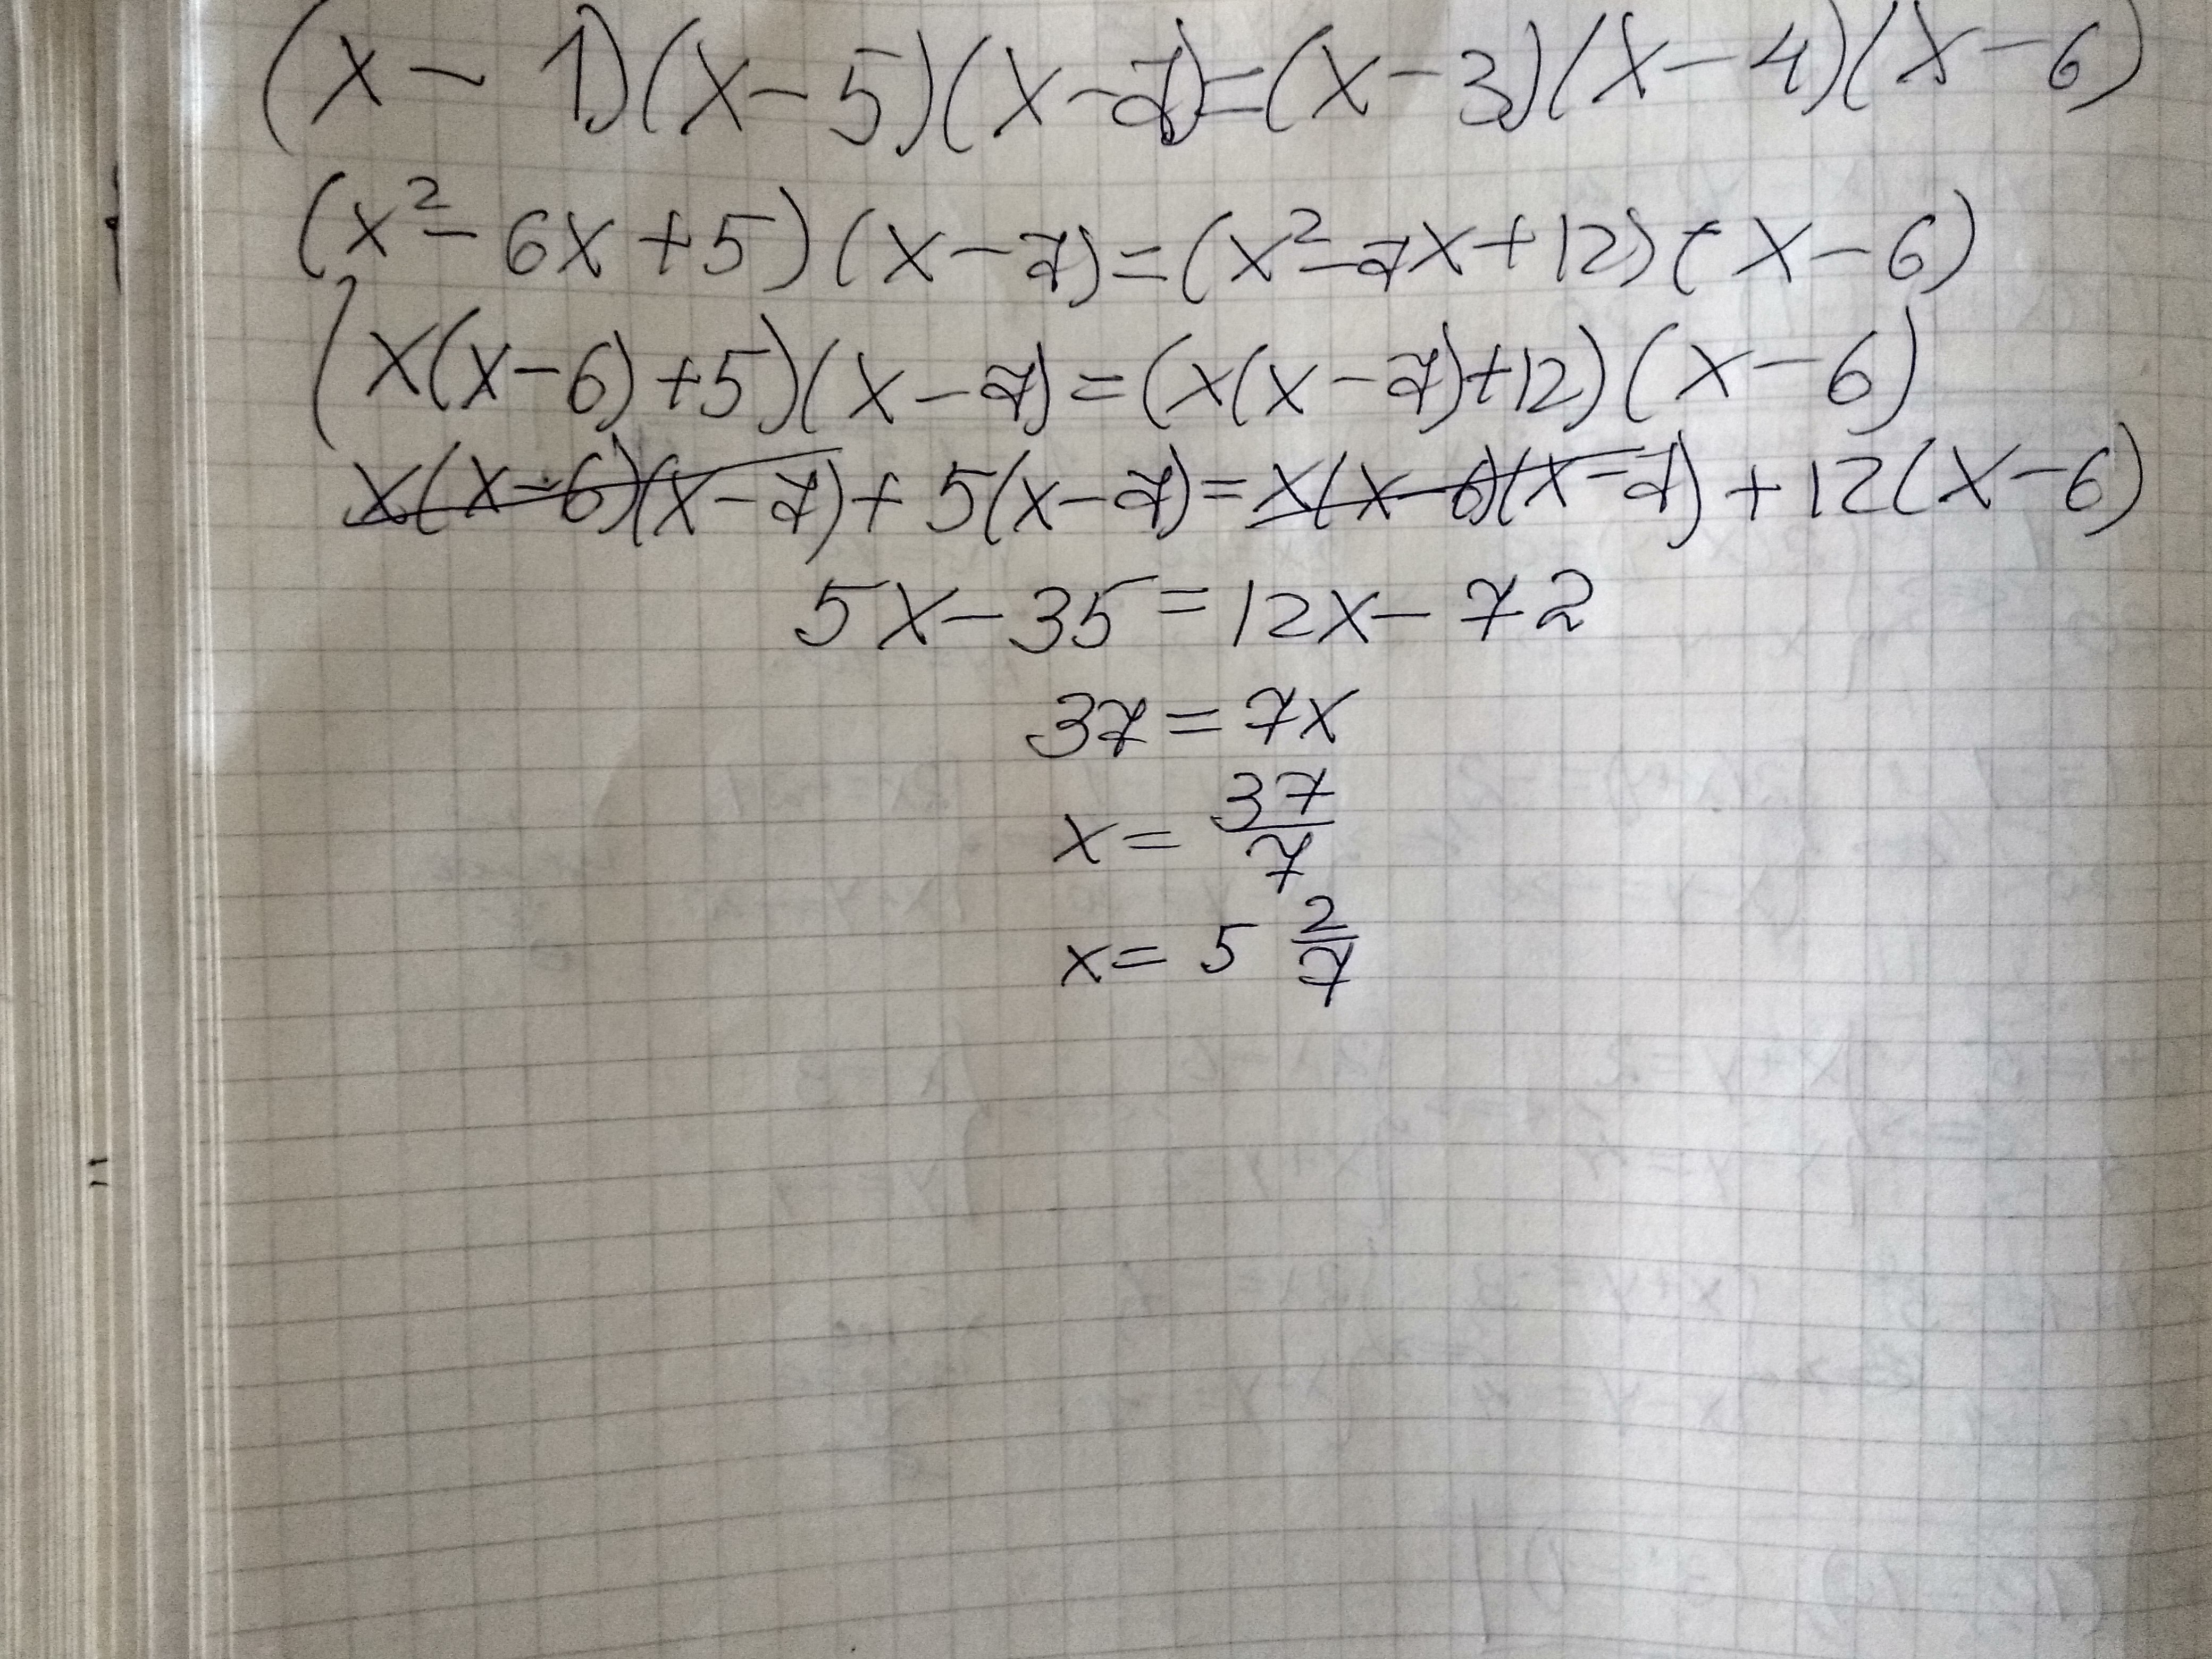 (x-1)(x-5)(x-7)=(x-3)(x-4)(x-6)
(x²-6x+5)(x-7)=(x²-7x+12)(x-6)
(x(x-6)+5)(x-7)=(x(x-7)+12)(x-6)
x(x-6)(x-7)+5(x-7)=x(x-6)(x-7)+12(x-6)
5x-35=12x-72
37=7x
x=37/7
x=5 2/7